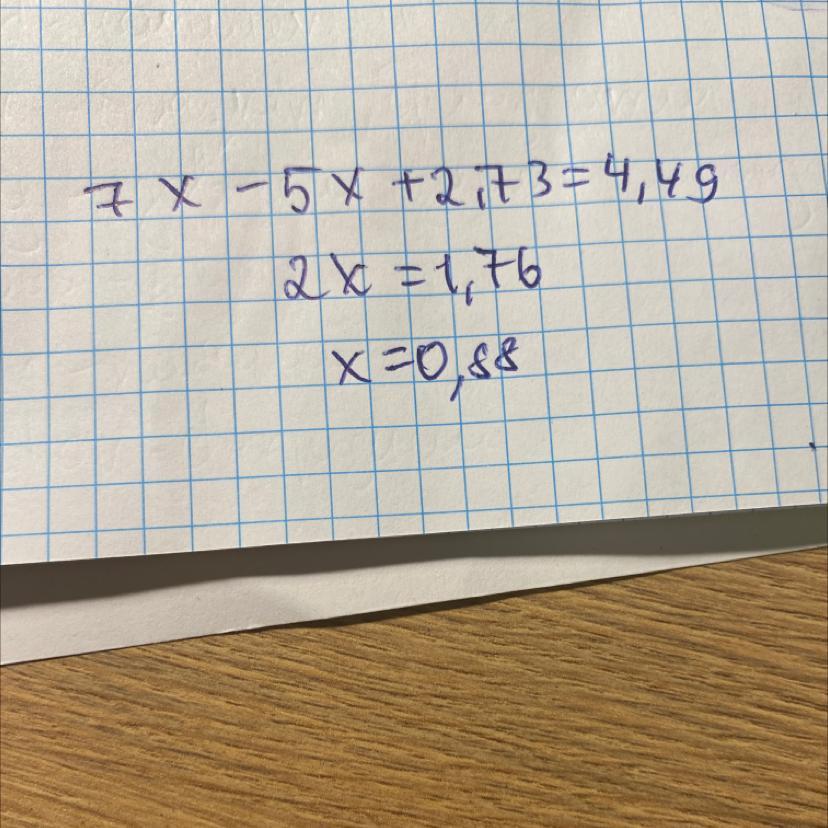 7x - 5x + 2,73 = 4,49
2x = 1,76
x = 0,88